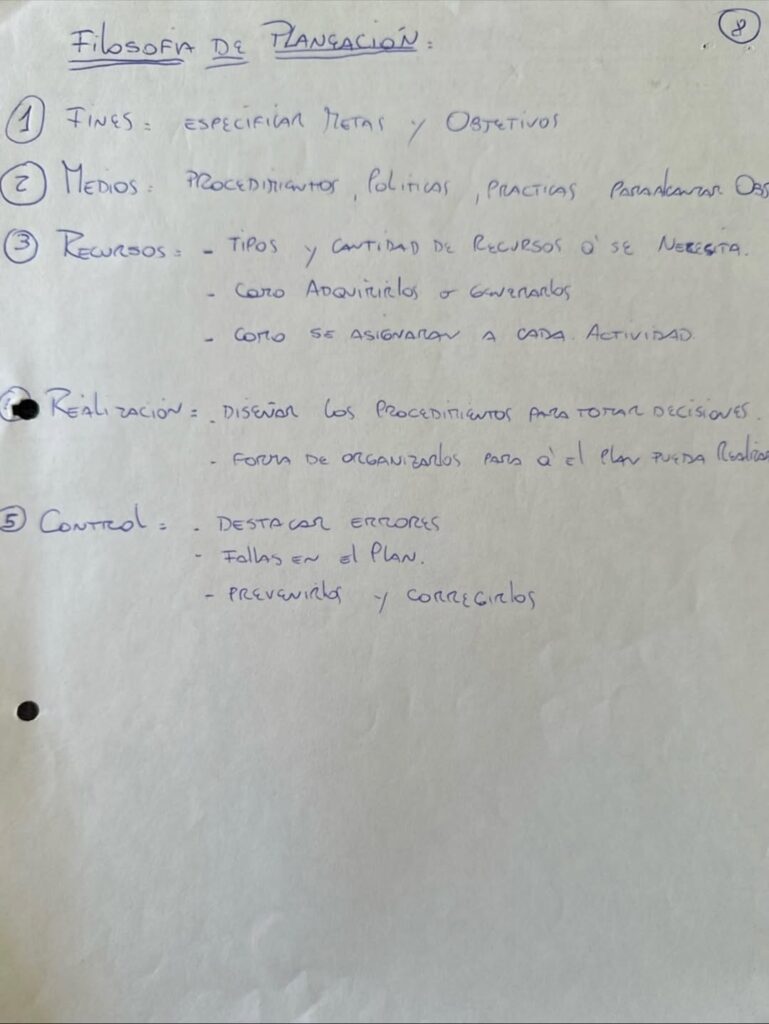 8
Filosofia DE PLANEACIÓN:
1 FINES: ESPECIFICAR METAS y OBJETIVOS
2 MEDIOS: PROCEDIMIENTOS, Políticas, PRACTICAS PARA Alcanzar OBS
3 RECURSOS: - TIPOS y CANTIDAD DE RECURSOS Q' SE NECESITA.
- COMO ADQUIRIRlos o GENERARlos
- COMO SE ASIGNARAN A CADA. ACTIVIDAD.
REALIZACIÓN: - DISEÑAR los PROCEDIMIENTOS PARA TOMAR DECISIONES.
- FORMA DE ORGANIZARlos PARA Q' El Plan PUEDA Realizar
5 CONTROl: - DESTACAR ERRORES
- Fallas EN el Plan.
- PREVENIRlos y CORREGIRlos